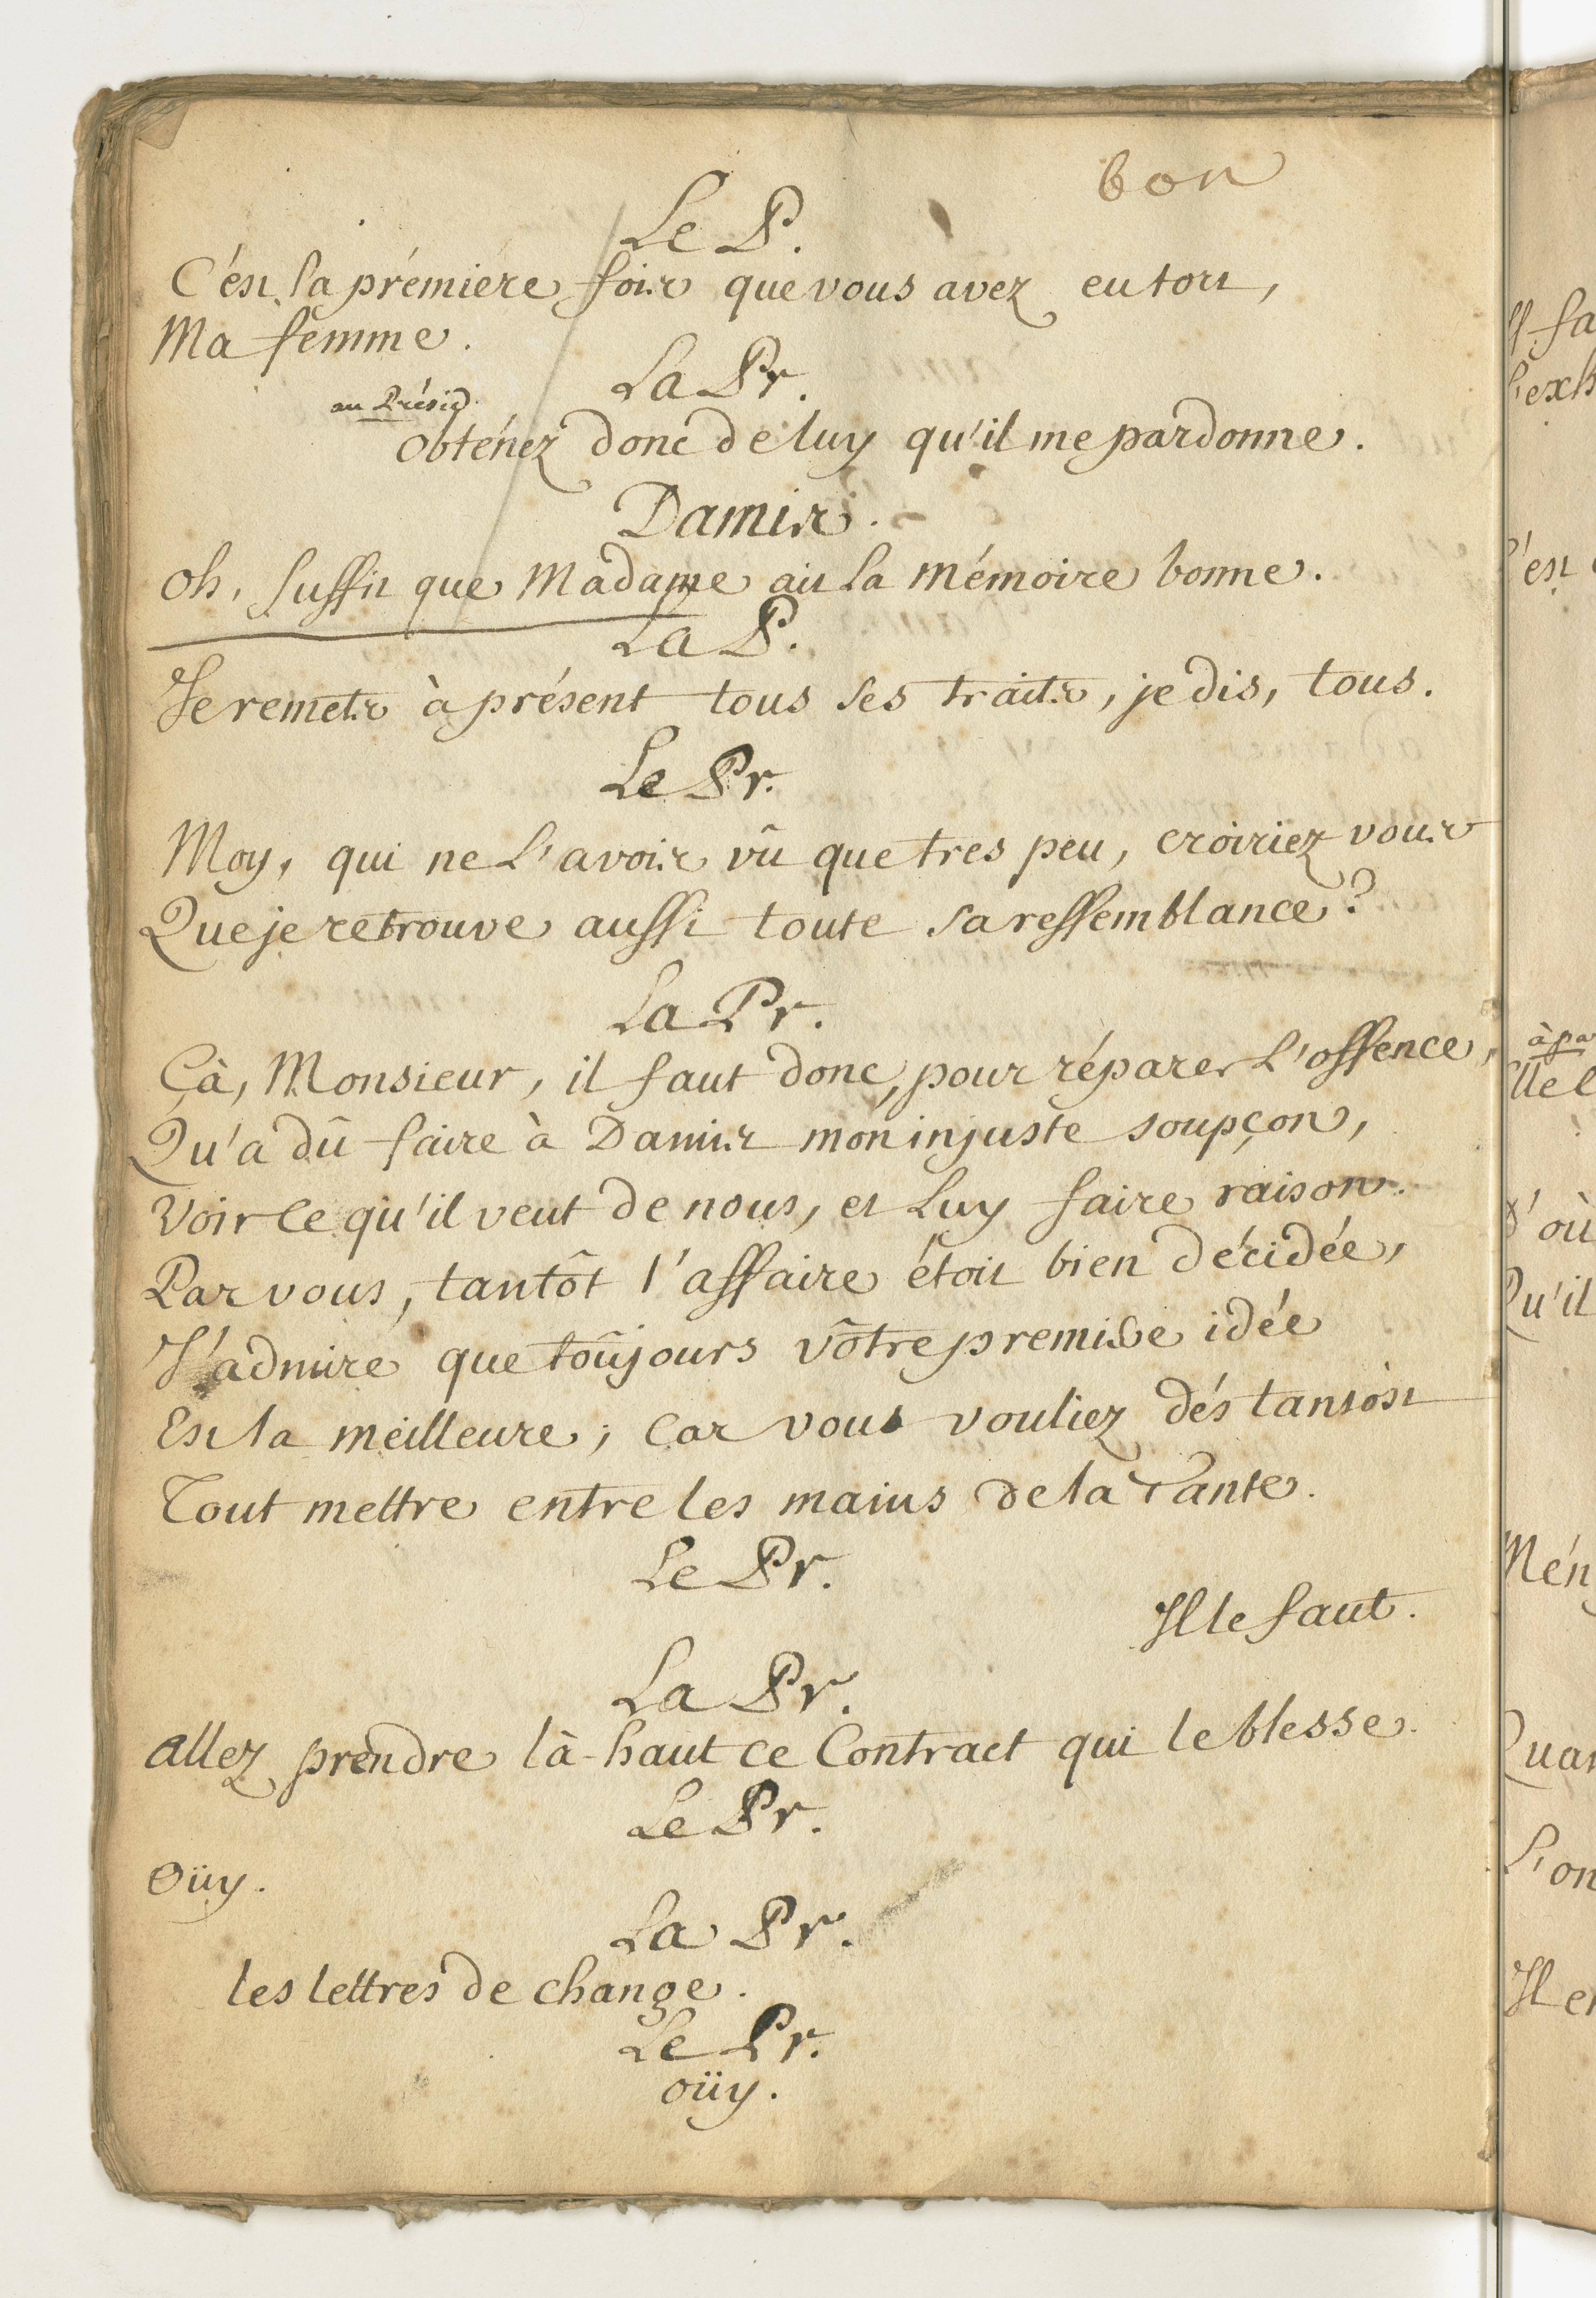 bon
Le P.
C'ést la prémiere fois que vous avez eu tort,
Ma femme.
La Pr.
au Présid.
obténez donc de luy qu'il me pardonne.
Damis.
oh, suffit que Madame ait la mémoire bonne.
La P.
Je remets à présent tous ses traits, je dis, tous.
Le Pr.
Moy, qui ne l'avois vû que tres peu, croiriez vous
Que je retrouve aussi toute sa ressemblance?
La Pr.
Çà, Monsieur, il faut donc, pour réparer l'offence,
Qu'a dû faire à Damis mon injuste soupçon,
Voir ce qu'il veut de nous, et luy faire raison.
Par vous, tantôt l'affaire étoit bien décidée,
J'admire que toûjours vôtre premiere idée
Est la meilleure; car vous vouliez dés tantost
Tout mettre entre les mains de la Tante.
Le Pr.
Il le faut.
La Pr.
allez prendre là-haut ce Contract qui le blesse.
Le Pr.
oüy.
La Pr.
les lettres de change.
Le Pr.
oüy.